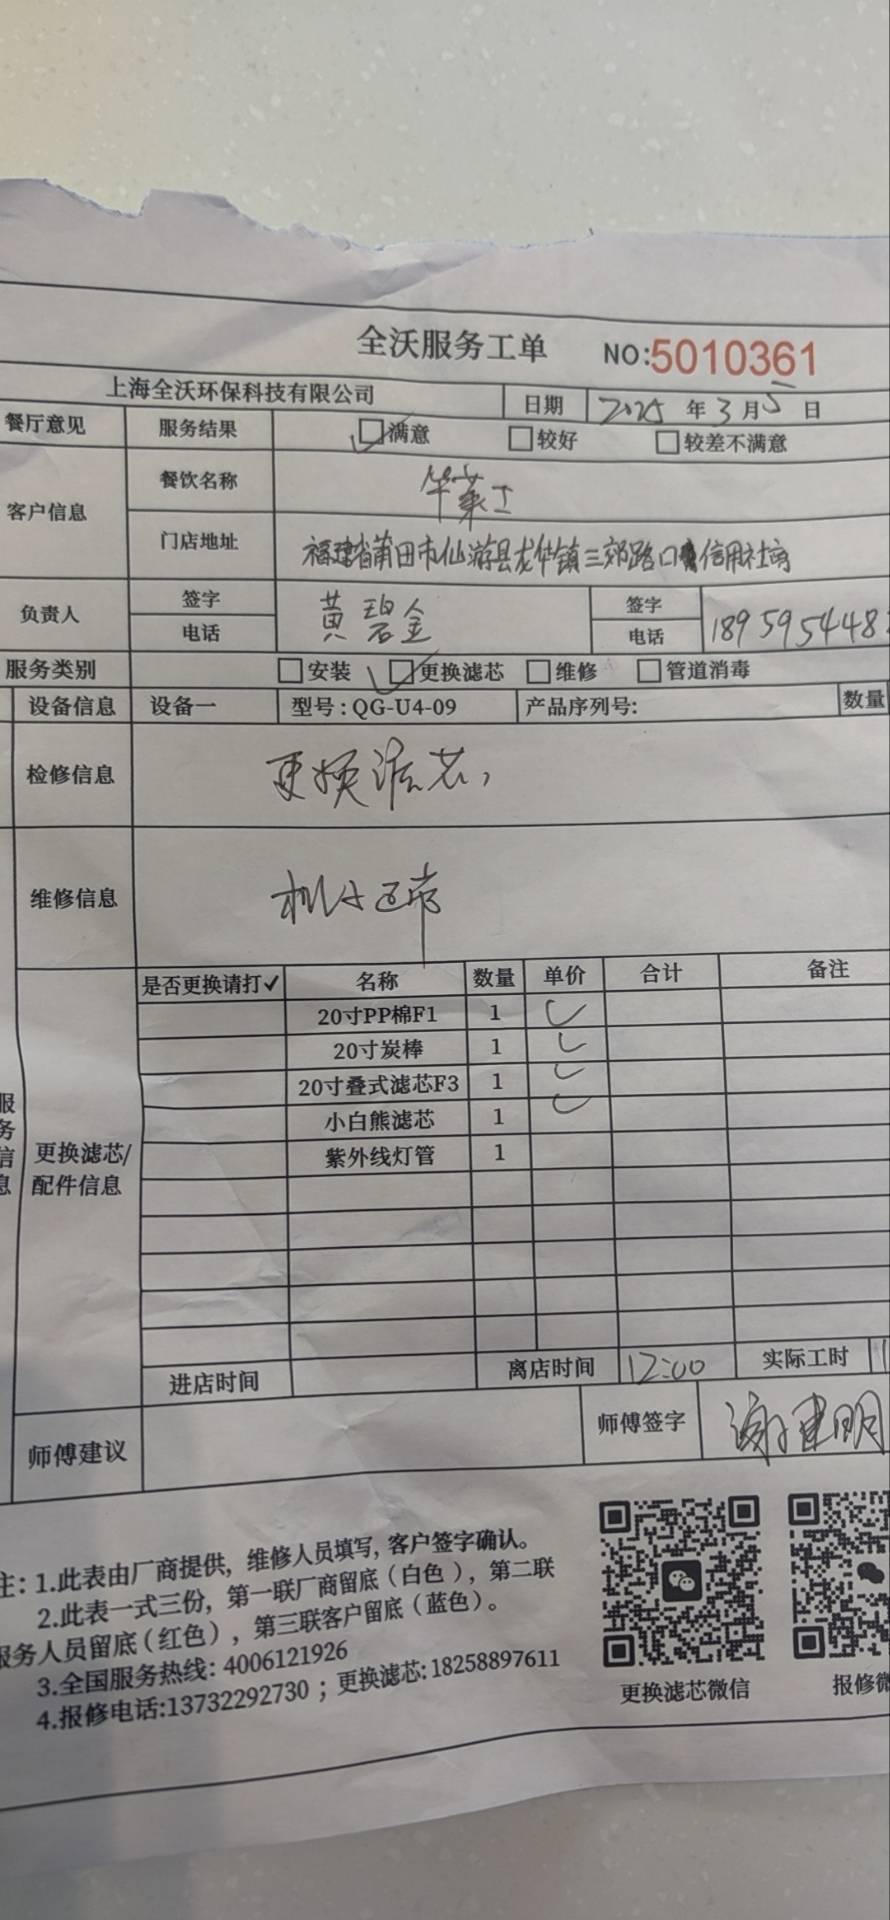 全沃服务工单 NO:5010361
上海全沃环保科技有限公司 日期 2025 年 3 月 5 日
餐厅意见 服务结果 满意 较好 较差不满意
客户信息 餐饮名称 华莱士
门店地址 福建省莆田市仙游县龙华镇三郊路口信用社旁
负责人 签字 黄碧金 签字
电话 电话 189595448
服务类别 安装 更换滤芯 维修 管道消毒
设备信息 设备一 型号:QG-U4-09 产品序列号: 数量
检修信息 更换滤芯,
维修信息 机小正常
是否更换请打✓ 名称 数量 单价 合计 备注
20寸PP棉F1 1 ✓
20寸炭棒 1 ✓
20寸叠式滤芯F3 1 ✓
小白熊滤芯 1 ✓
紫外线灯管 1
服务信息
更换滤芯/
配件信息
进店时间 离店时间 12:00 实际工时 1
师傅建议 师傅签字 谢建明
注: 1.此表由厂商提供, 维修人员填写, 客户签字确认。
2.此表一式三份, 第一联厂商留底(白色), 第二联
服务人员留底(红色), 第三联客户留底(蓝色)。
3.全国服务热线: 4006121926
4.报修电话:13732292730 ; 更换滤芯:18258897611
更换滤芯微信 报修微